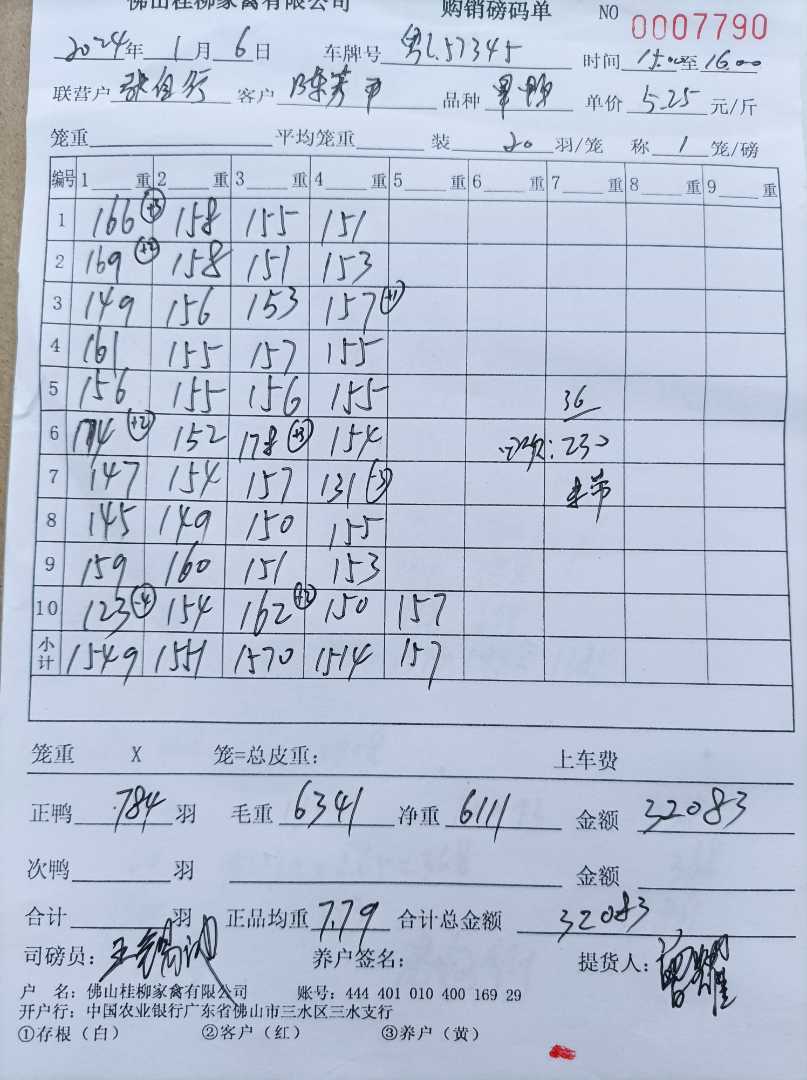 佛山桂柳家禽有限公司 购销磅码单 NO 0007790
2024年 1月 6日 车牌号 粤L57345 时间 15:00至16:00
联营户 张自行 客户 陈芳 品种 单价 5.25 元/斤
笼重 平均笼重 装 20 羽/笼 称 1 笼/磅
编号 1 重 2 重 3 重 4 重 5 重 6 重 7 重 8 重 9 重
1 166 +3 158 155 151
2 169 +2 158 151 153
3 149 156 153 157 +1
4 161 155 157 155
5 156 155 156 155 36
6 174 +2 152 178 +3 154 : 230
7 147 154 157 131 -3
8 145 149 150 155
9 159 160 151 153
10 123 -4 154 162 +2 150 157
小计 1549 1551 1570 1514 157
笼重 X 笼=总皮重: 上车费
正鸭 784 羽 毛重 6341 净重 6111 金额 32083
次鸭 羽 金额
合计 羽 正品均重 7.79 合计总金额 32083
司磅员: 养户签名: 提货人:
户 名: 佛山桂柳家禽有限公司 账号: 444 401 010 400 169 29
开户行: 中国农业银行广东省佛山市三水区三水支行
①存根(白) ②客户(红) ③养户(黄)